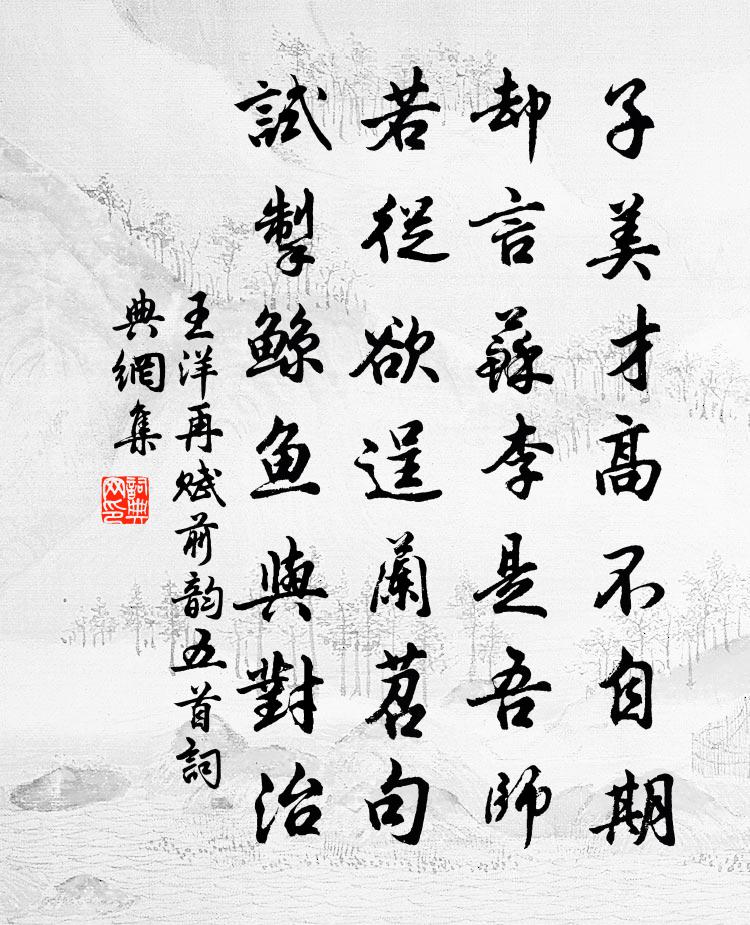 子美才高不自期
却言蘇李是吾師
若從欲逞蘭苕句
試掣鯨魚與對治
王洋再賦前韵五首詞
典網集
詞典
网印